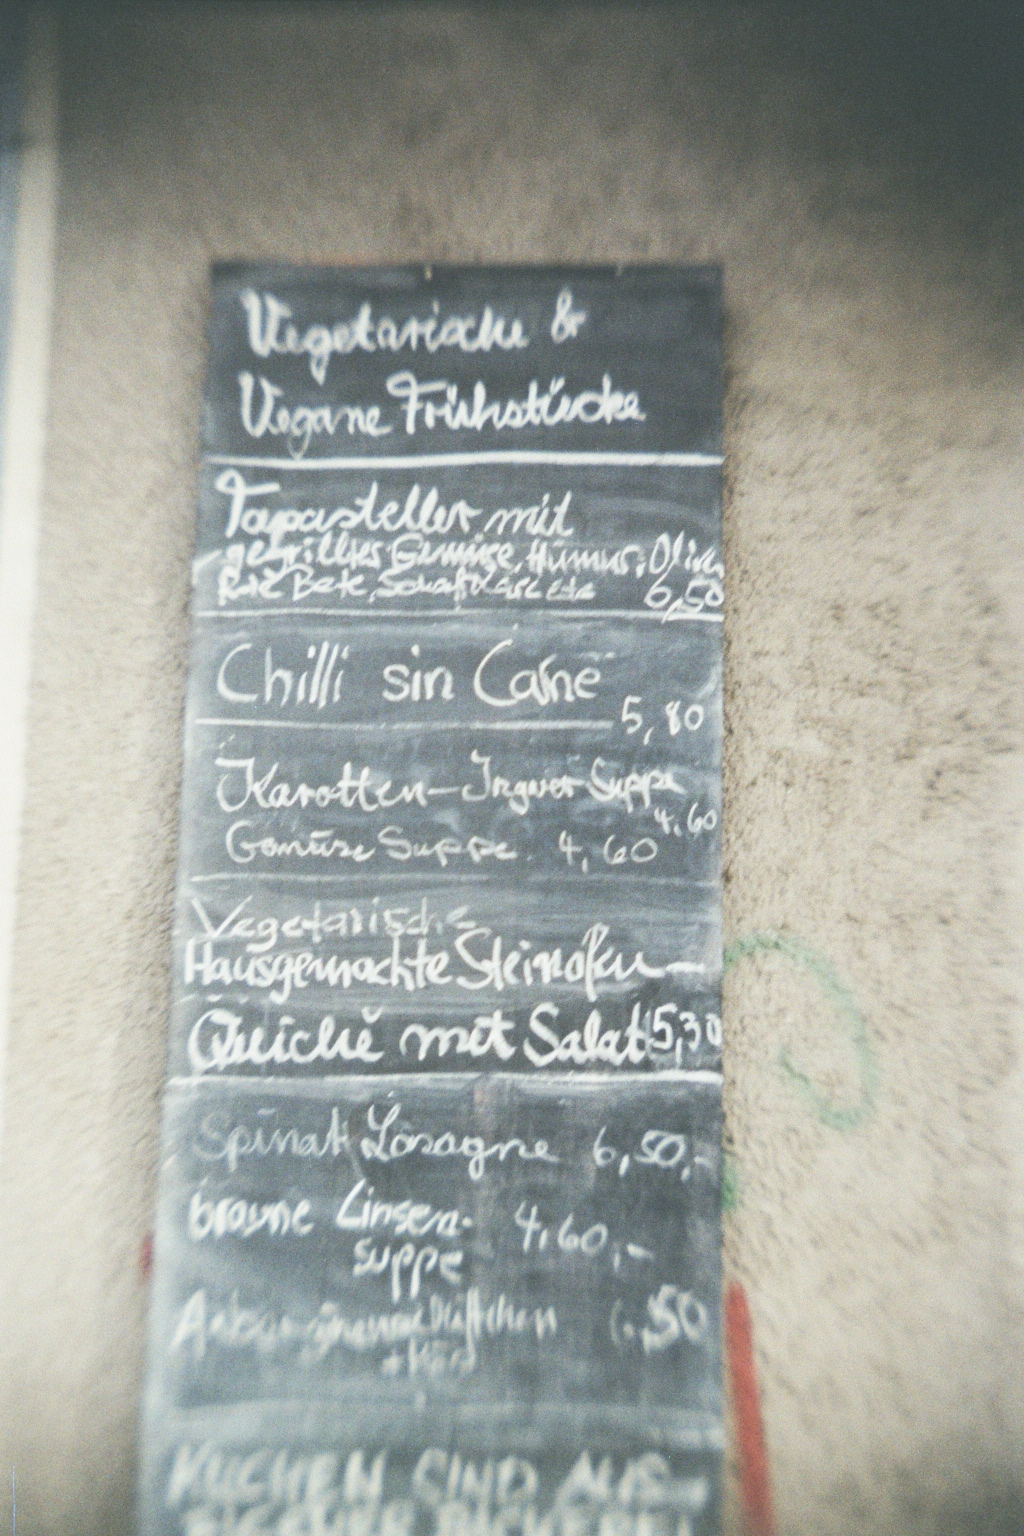 Vegetarische &
Vegane Frühstücke
Tapasteller mit
gegrilltes Gemüse, Humus, Oliven
Rote Bete, Schafskäse etc 6,50
Chilli sin Carne
5,80
Karotten-Ingwer Suppe
4,60
Gemüse Suppe 4,60
Vegetarische
Hausgemachte Steinofen-
Quiche mit Salat 5,30
Spinat Lasagne 6,50,-
braune Linsen- 4,60,-
suppe
KUCHEN SIND AUS